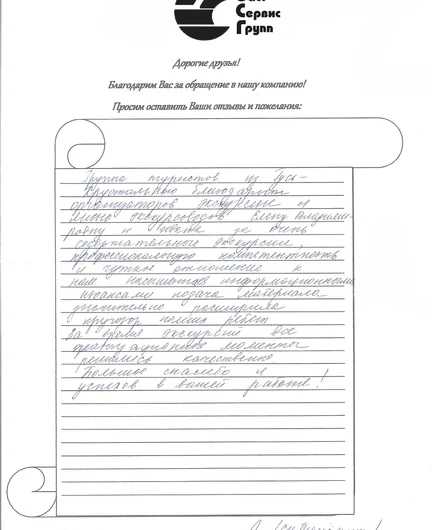 Сервис
Групп
Дорогие друзья!
Благодарим Вас за обращение в нашу компанию!
Просим оставить Ваши отзывы и пожелания:
Группа туристов из Гусь-
Хрустального благодарит
организаторов экскурсии и
лично экскурсоводов Елену Владими-
ровну и за очень
содержательные экскурсии,
профессиональную компетентность
и чуткое отношение к
нам. Насыщенная информационными
нюансами подача материала
значительно расширила
кругозор наших ребят.
За время экскурсий все
организационные моменты
решались качественно.
Большое спасибо и
успехов в вашей работе!